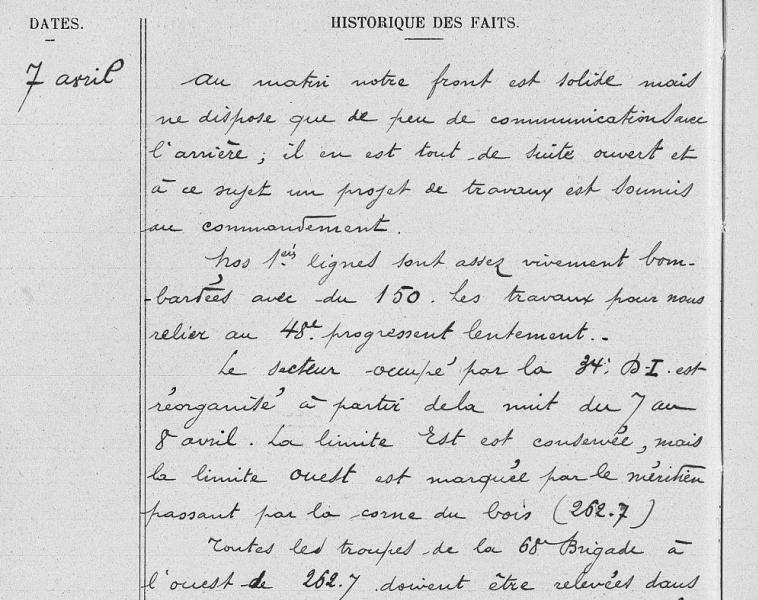 DATES.
HISTORIQUE DES FAITS.
7 avril
au matin notre front est solide mais
ne dispose que de peu de communications avec
l'arrière ; il en est tout de suite ouvert et
à ce sujet un projet de travaux est soumis
au commandement.
Nos 1ères lignes sont assez vivement bom-
-bardées avec du 150. Les travaux pour nous
relier au 48e progressent lentement. -
Le secteur occupé par la 34e D-I. est
réorganisé à partir de la nuit du 7 au
8 avril. La limite Est est conservée, mais
la limite ouest est marquée par le méridien
passant par la corne du bois (262.7)
Toutes les troupes de la 68e Brigade à
l'ouest de 262.7 doivent être relevées dans